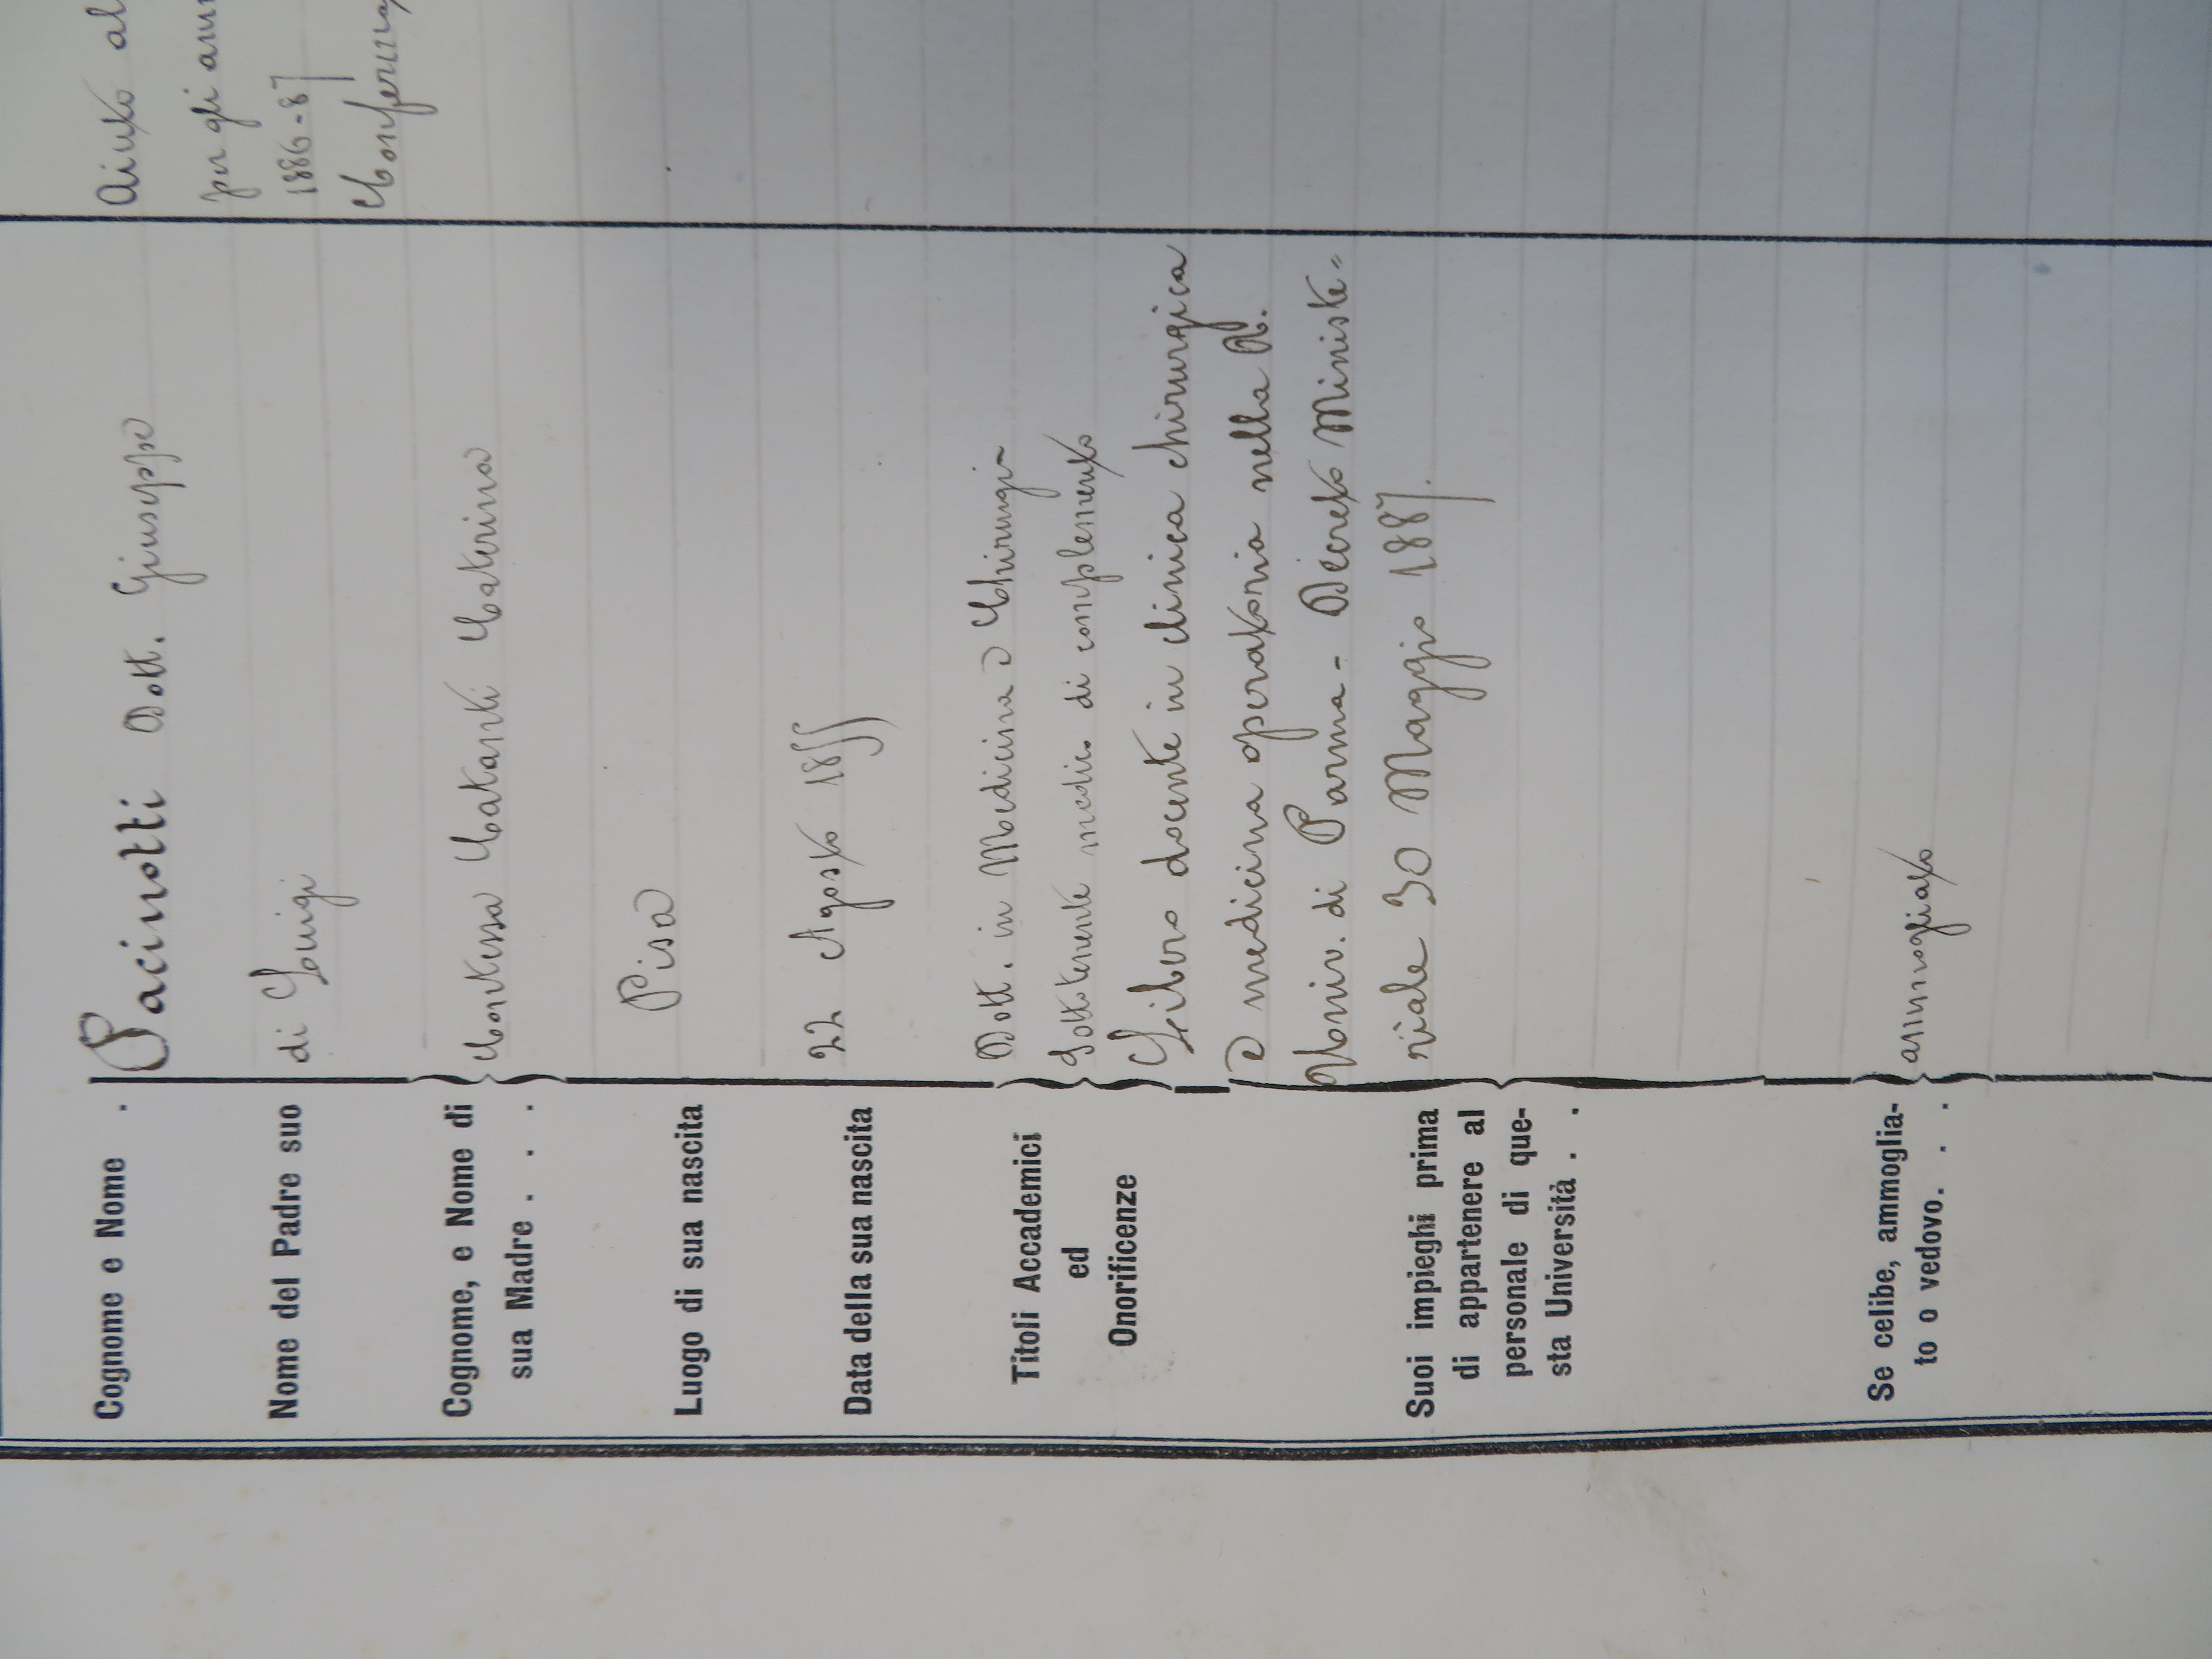 Cognome e Nome . Pacinotti Dott. Giuseppe
Nome del Padre suo di Luigi
Cognome, e Nome di
sua Madre . . . Contessa Catanti Caterina
Luogo di sua nascita Pisa
Data della sua nascita 22 Agosto 1855
Titoli Accademici
ed
Onorificenze
Dott. in Medicina e Chirurgi-
Sottotenente medico di complemento
Libero docente in clinica chirurgica
e medicina operatoria nella R.
Univ. di Parma - Decreto Ministe=
riale 30 Maggio 1887.
Suoi impieghi prima
di appartenere al
personale di que-
sta Università . .
Se celibe, ammoglia-
to o vedovo. . . ammogliato
Aiuto al
per gli ann
1886-87
Conferma